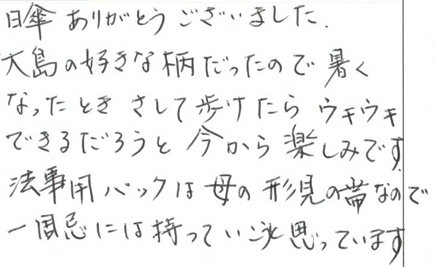 日傘ありがとうございました.
大島の好きな柄だったので暑く
なったとき さして歩けたら ウキウキ
できるだろうと 今から 楽しみです
法事用バックは母の形見の帯なので
一周忌には持っていこうと思っています